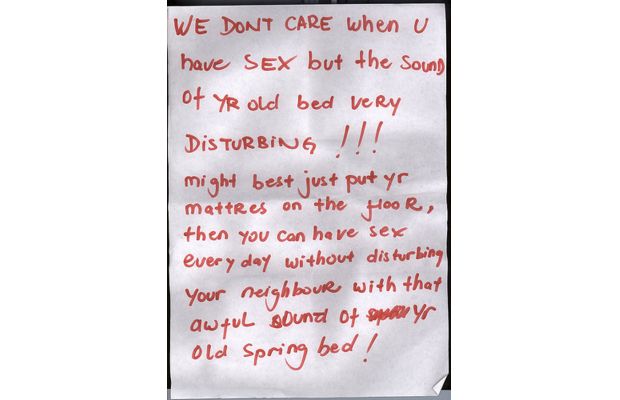 WE DONT CARE when U
have SEX but the SOUND
Of YR old bed very
DISTURBING !!!
might best just put yr
mattres on the flooR,
then you can have sex
every day without disturbing
your neighbouR with that
awful sound of yr
old spring bed!